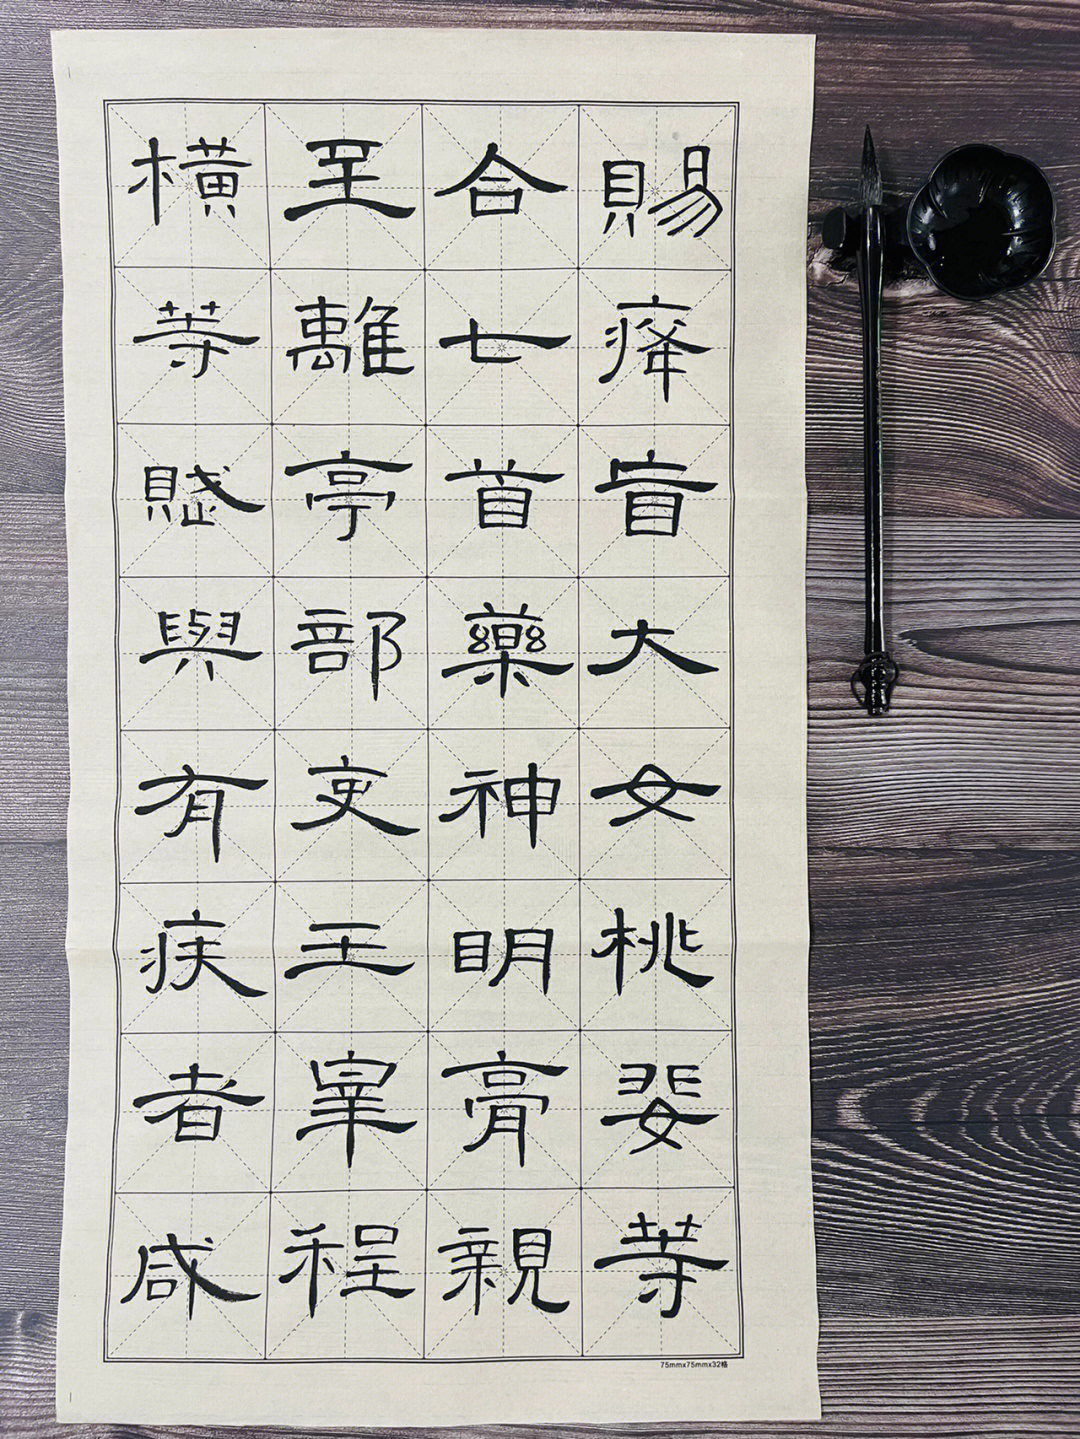 賜癃盲大女桃婓等
合七首藥神明膏親
至離亭部吏王睾程
橫等賦與有疾者咸
75mmx75mmx32格